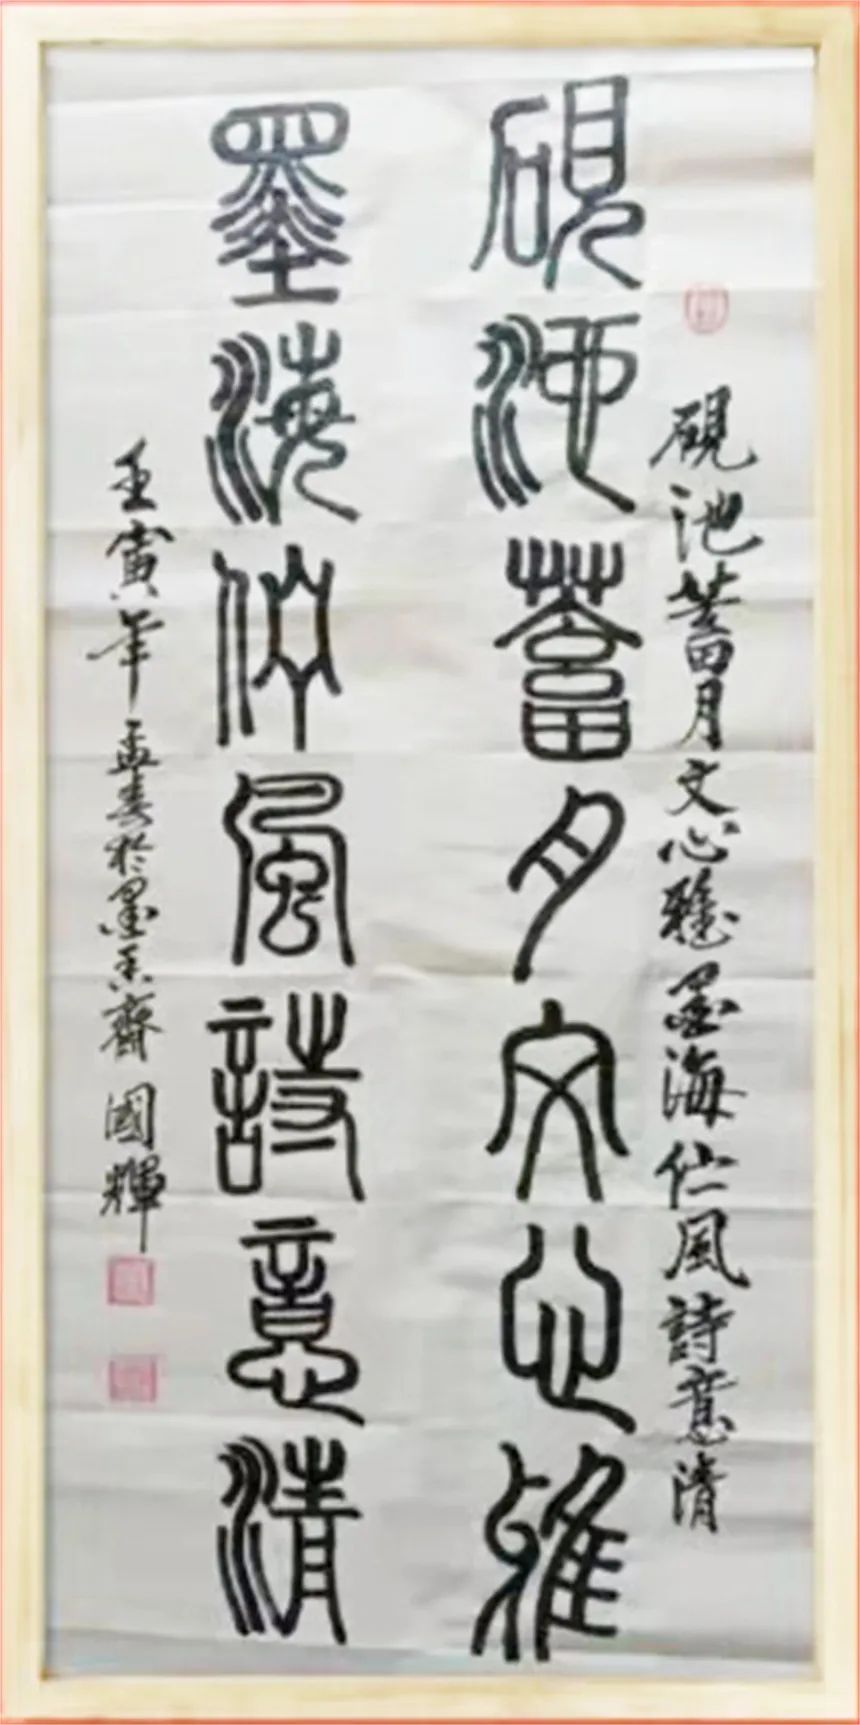 硯池蓄月文心雅墨海伫風詩意清
硯池蓄月文心雅
墨海佇風詩意清
壬寅年孟春於墨香齋國輝